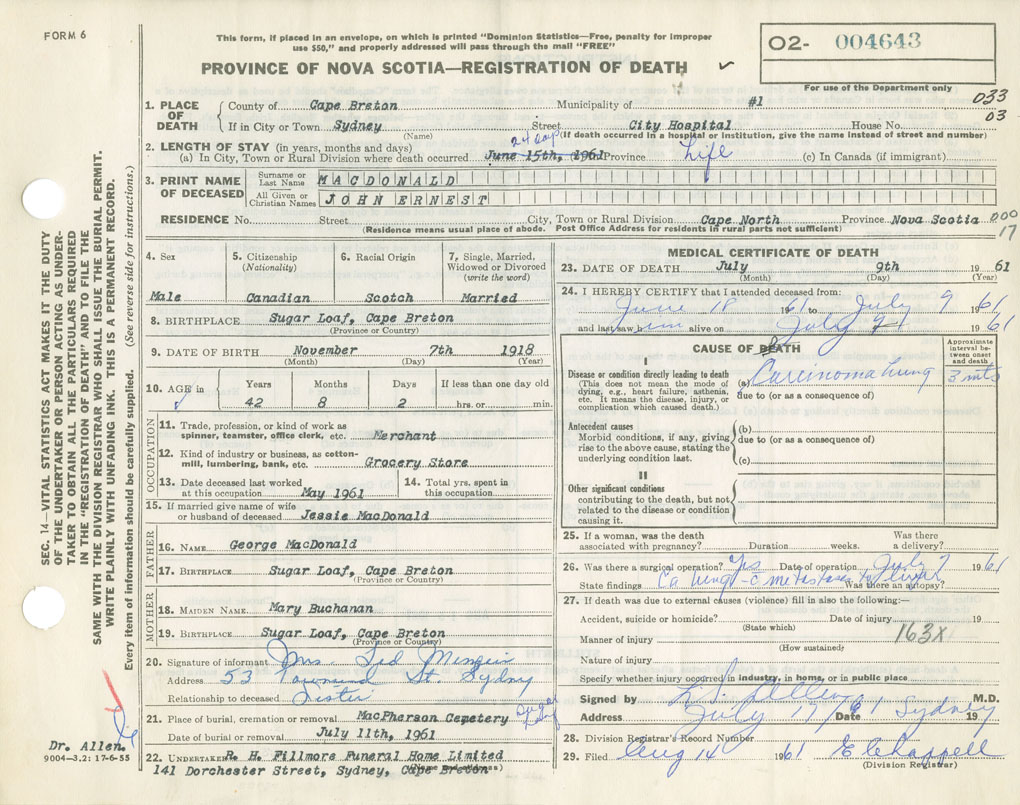 FORM 6
This form, if placed in an envelope, on which is printed "Dominion Statistics—Free, penalty for improper
use $50," and properly addressed will pass through the mail "FREE"
O2- 004643
PROVINCE OF NOVA SCOTIA—REGISTRATION OF DEATH
For use of the Department only
033
03
1. PLACE OF DEATH
County of Cape Breton Municipality of #1
If in City or Town Sydney Street City Hospital House No.
(Name) (If death occurred in a hospital or institution, give the name instead of street and number)
2. LENGTH OF STAY (in years, months and days)
24 days
(a) In City, Town or Rural Division where death occurred June 15th, 1961 Province Life (c) In Canada (if immigrant)
3. PRINT NAME OF DECEASED
Surname or Last Name MACDONALD
All Given or Christian Names JOHN ERNEST
RESIDENCE No. Street City, Town or Rural Division Cape North Province Nova Scotia 000
17
(Residence means usual place of abode. Post Office Address for residents in rural parts not sufficient)
4. Sex
Male
5. Citizenship
(Nationality)
Canadian
6. Racial Origin
Scotch
7. Single, Married,
Widowed or Divorced
(write the word)
Married
8. BIRTHPLACE Sugar Loaf, Cape Breton
(Province or Country)
9. DATE OF BIRTH November 7th 1918
(Month) (Day) (Year)
10. AGE in
Years Months Days If less than one day old
42 8 2 hrs. or min.
OCCUPATION
11. Trade, profession, or kind of work as
spinner, teamster, office clerk, etc. Merchant
12. Kind of industry or business, as cotton-
mill, lumbering, bank, etc. Grocery Store
13. Date deceased last worked
at this occupation May 1961
14. Total yrs. spent in
this occupation
15. If married give name of wife
or husband of deceased Jessie MacDonald
FATHER
16. NAME George MacDonald
17. BIRTHPLACE Sugar Loaf, Cape Breton
(Province or Country)
MOTHER
18. MAIDEN NAME Mary Buchanan
19. BIRTHPLACE Sugar Loaf, Cape Breton
(Province or Country)
20. Signature of informant Mrs. Ted
Address 53 Townsend St. Sydney
Relationship to deceased Sister
21. Place of burial, cremation or removal MacPherson Cemetery Sugar Loaf
Date of burial or removal July 11th, 1961
22. UNDERTAKER R. H. Fillmore Funeral Home Limited
(Name and address)
141 Dorchester Street, Sydney, Cape Breton
MEDICAL CERTIFICATE OF DEATH
23. DATE OF DEATH July 9th 1961
(Month) (Day) (Year)
24. I HEREBY CERTIFY that I attended deceased from:
June 18 1961 to July 9 1961
and last saw him alive on July 9 1961
CAUSE OF DEATH
Approximate
interval be-
tween onset
and death
I
Disease or condition directly leading to death
(This does not mean the mode of
dying, e.g., heart failure, asthenia,
etc. It means the disease, injury, or
complication which caused death.)
(a) Carcinoma lung 3 mts
due to (or as a consequence of)
Antecedent causes
Morbid conditions, if any, giving
rise to the above cause, stating the
underlying condition last.
(b)
due to (or as a consequence of)
(c)
II
Other significant conditions
contributing to the death, but not
related to the disease or condition
causing it.
25. If a woman, was the death
associated with pregnancy? Duration weeks. Was there
a delivery?
26. Was there a surgical operation? Yes Date of operation July 7 1961
State findings Ca lung - c metastases to liver Was there an autopsy?
27. If death was due to external causes (violence) fill in also the following:—
Accident, suicide or homicide? Date of injury 19
(State which)
163X
Manner of injury
(How sustained)
Nature of injury
Specify whether injury occurred in industry, in home, or in public place
Signed by Allen M.D.
Address July 17/61 Date Sydney 19
28. Division Registrar's Record Number
29. Filed Aug 14 1961 E Chappell
(Division Registrar)
SEC. 14—VITAL STATISTICS ACT MAKES IT THE DUTY
OF THE UNDERTAKER OR PERSON ACTING AS UNDER-
TAKER TO OBTAIN ALL THE PARTICULARS REQUIRED
IN THE "REGISTRATION OF DEATH" AND TO FILE THE
SAME WITH THE DIVISION REGISTRAR WHO SHALL ISSUE THE BURIAL PERMIT.
WRITE PLAINLY WITH UNFADING INK. THIS IS A PERMANENT RECORD.
Every item of information should be carefully supplied. (See reverse side for instructions.)
Dr. Allen.
9004—3.2: 17-6-55